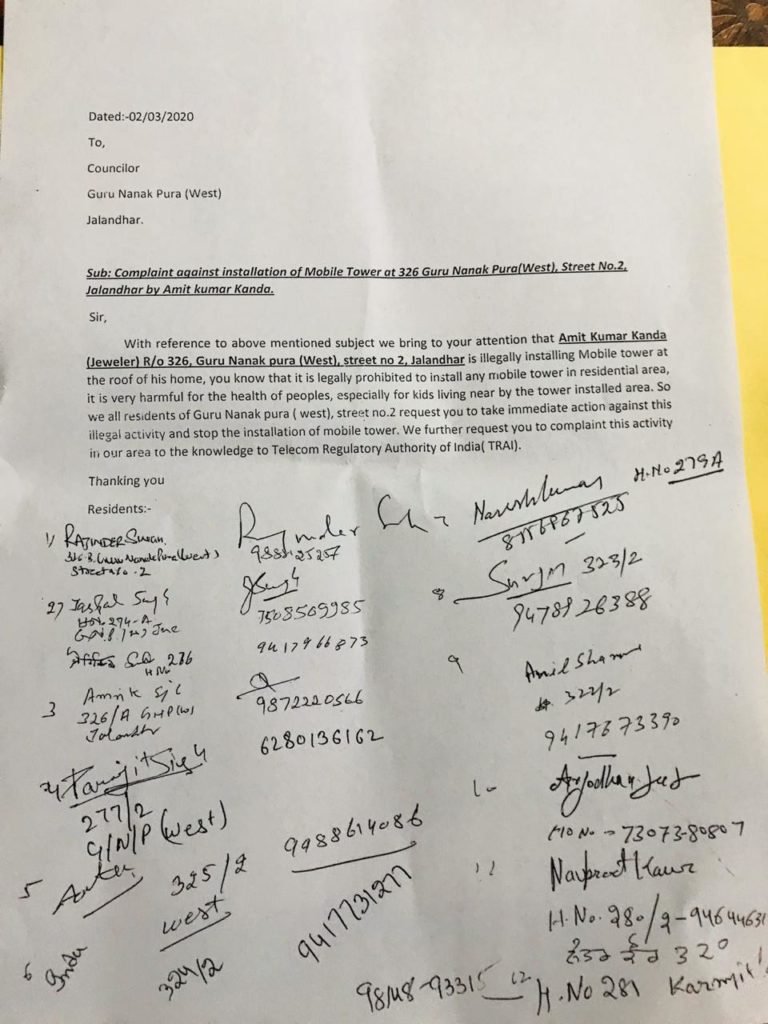 Dated:-02/03/2020
To,
Councilor
Guru Nanak Pura (West)
Jalandhar.
Sub: Complaint against installation of Mobile Tower at 326 Guru Nanak Pura(West), Street No.2,
Jalandhar by Amit kumar Kanda.
Sir,
With reference to above mentioned subject we bring to your attention that Amit Kumar Kanda
(Jeweler) R/o 326, Guru Nanak pura (West), street no 2, Jalandhar is illegally installing Mobile tower at
the roof of his home, you know that it is legally prohibited to install any mobile tower in residential area,
it is very harmful for the health of peoples, especially for kids living near by the tower installed area. So
we all residents of Guru Nanak pura ( west), street no.2 request you to take immediate action against this
illegal activity and stop the installation of mobile tower. We further request you to complaint this activity
in our area to the knowledge to Telecom Regulatory Authority of India( TRAI).
Thanking you
Residents:-
1) RAJINDER
Street No. 2
2)
H.No. 274-A
7508509985
286
H.No
9417966873
3
326/A GNP(W)
Jalandhar
9872220566
6280136162
4
277/2
G/N/P (west)
9988614086
5
325/2
west
9417731277
6 Indu
324/2
Nareshkumar H.No 279A
8 323/2
9478926388
9 Anil Sharma
322/2
9417673390
10
MO No - 73073-80807
11 Navpreet Kaur
H.No. 280/2-94644631
320
93315 12 H.No 281 Karmjit